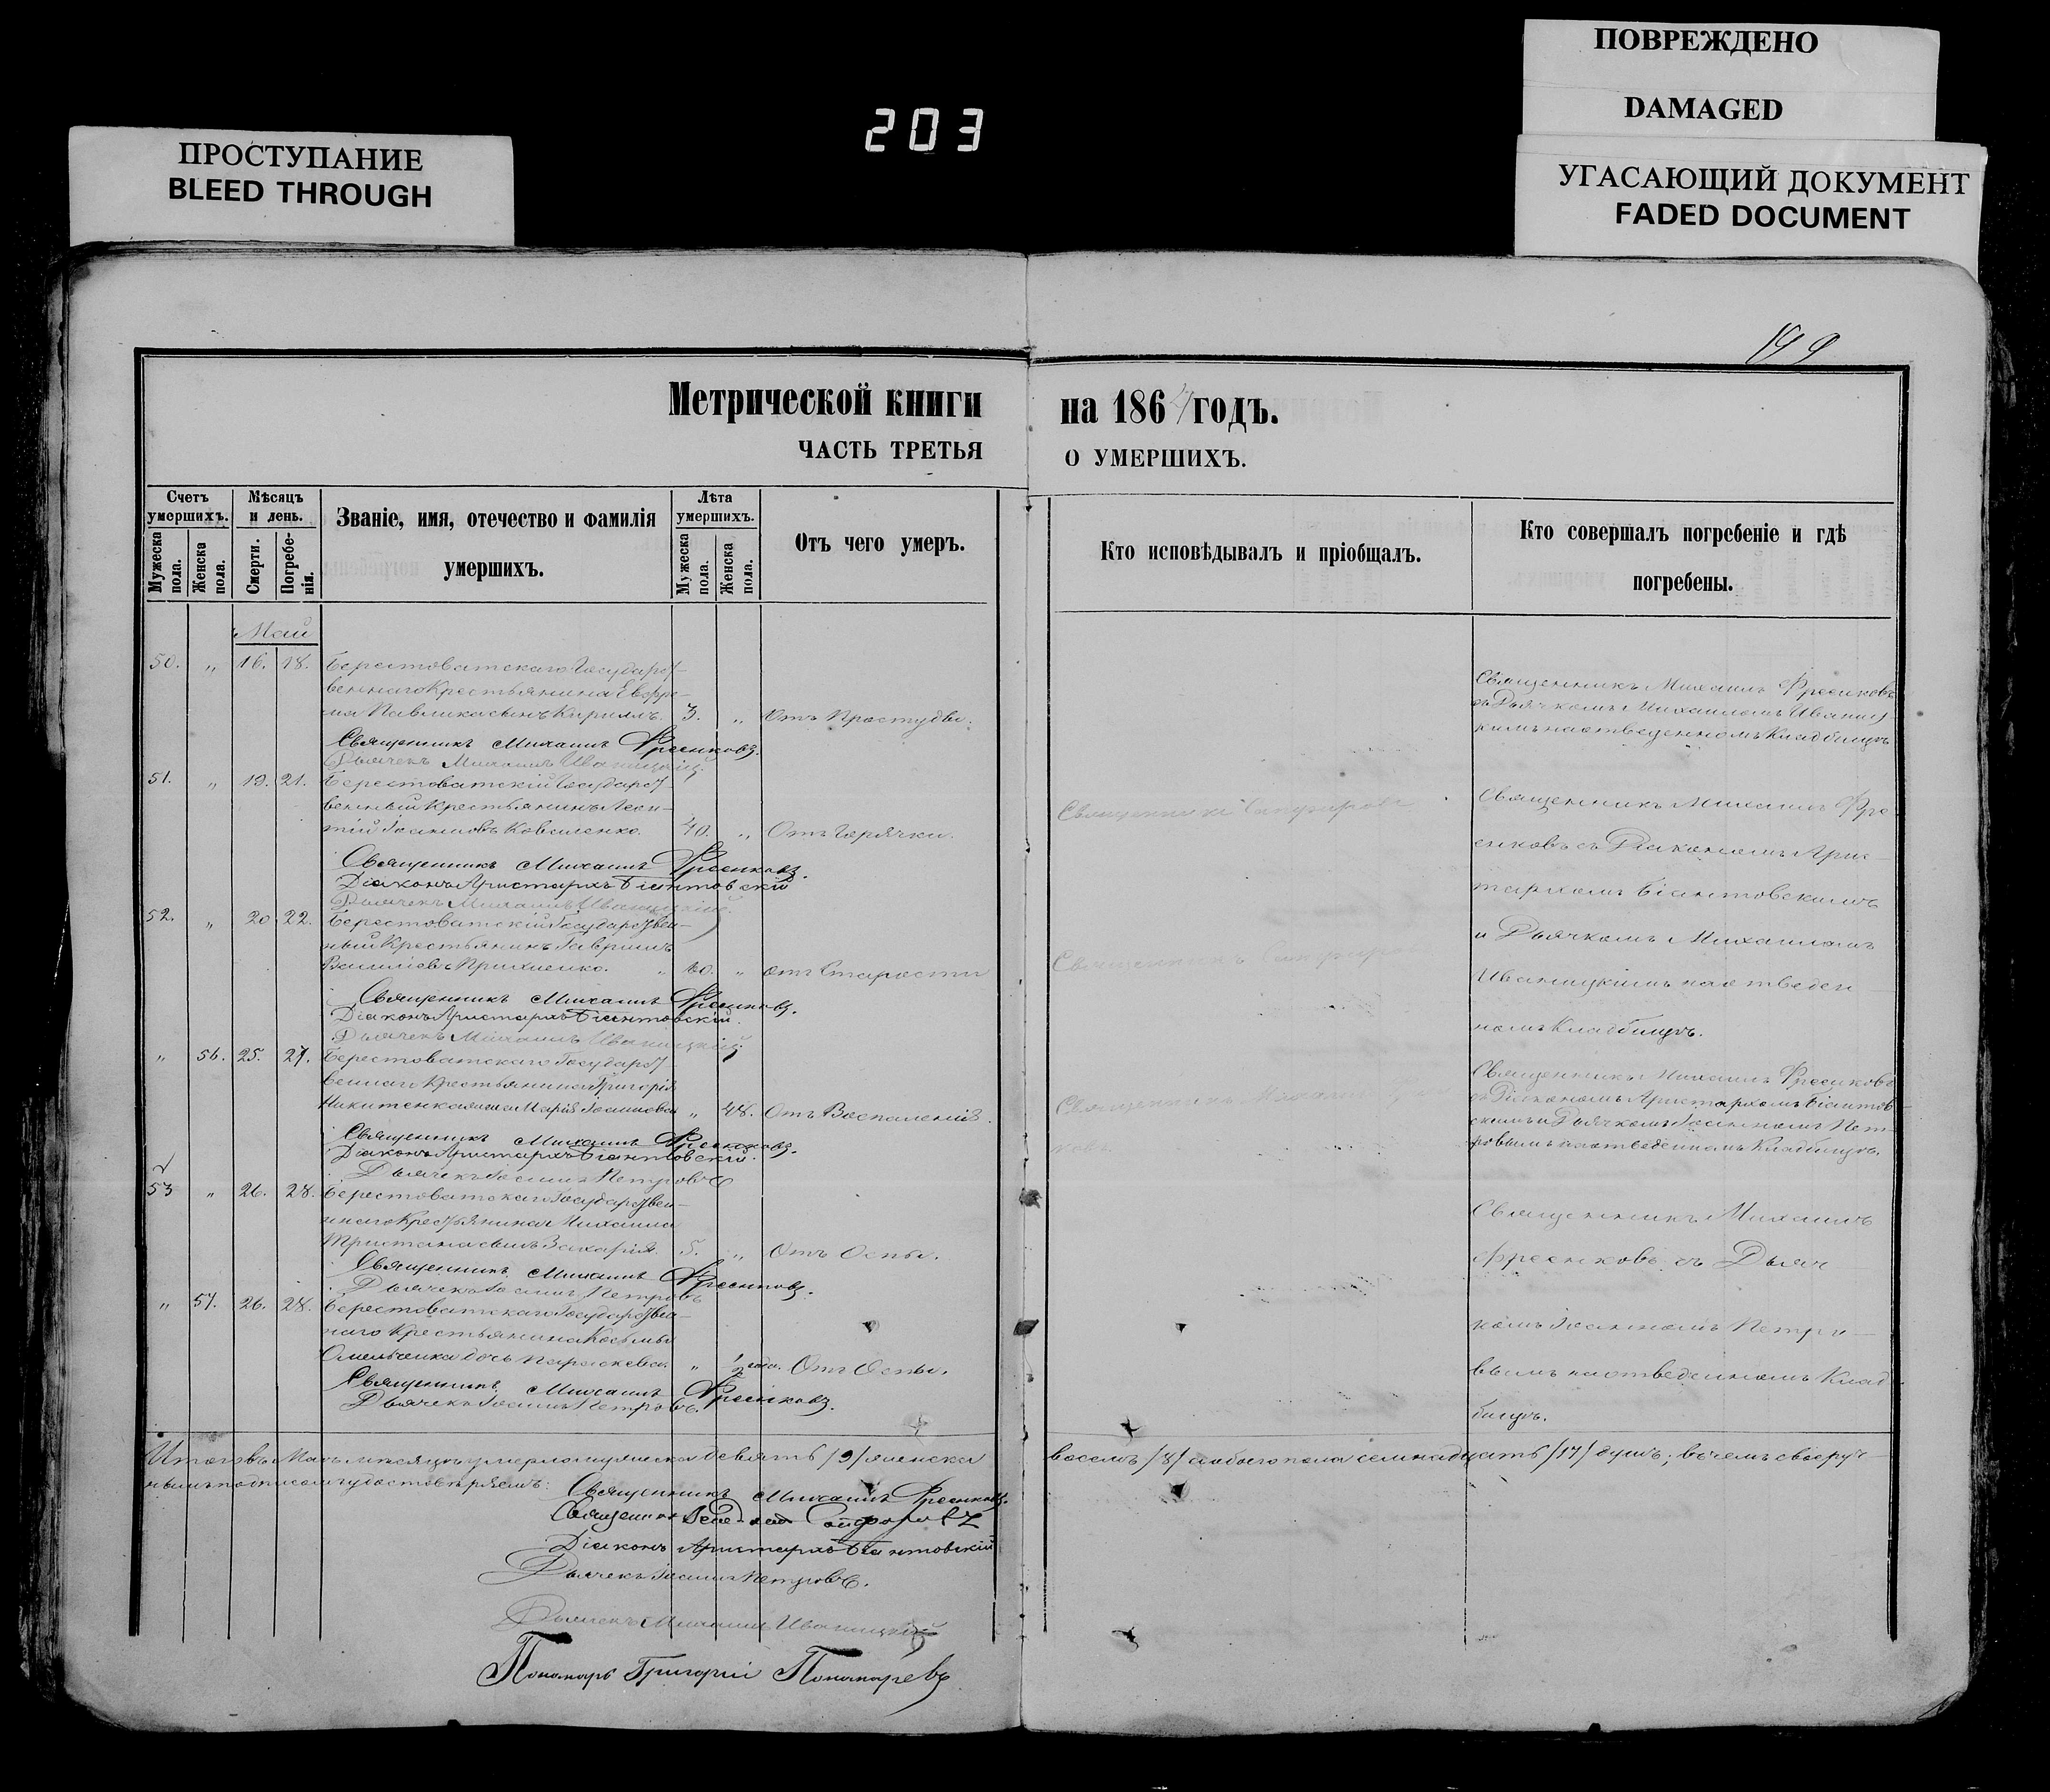 203
ПРОСТУПАНИЕ
BLEED THROUGH
ПОВРЕЖДЕНО
DAMAGED
УГАСАЮЩИЙ ДОКУМЕНТ
FADED DOCUMENT
199
Метрической книги на 1864 годъ.
ЧАСТЬ ТРЕТЬЯ О УМЕРШИХЪ.
Счетъ умершихъ.
Мужеска пола.
Женска пола.
Мѣсяцъ и день.
Смерти.
Погребенія.
Званіе, имя, отечество и фамилія умершихъ.
Лѣта умершихъ.
Мужеска пола.
Женска пола.
Отъ чего умеръ.
Кто исповѣдывалъ и пріобщалъ.
Кто совершалъ погребеніе и гдѣ погребены.
Май
50. „ 16. 18. Берестоватскаго Государст-
веннаго Крестьянина Евфре-
ма Павлика сынъ Кириллъ. 3. „ Отъ Простуды.
Священникъ Михаилъ Фресенковъ.
Дьячекъ Михаилъ Иваницкій.
Священникъ Михаилъ Фресенковъ
съ Дьячкомъ Михаиломъ Иваниц-
кимъ на отведенномъ Кладбищѣ
51. „ 19. 21. Берестоватскій Государст-
венный Крестьянинъ Леон-
тій Іоанновъ Коваленко. 40. „ Отъ Горячки.
Священникъ Михаилъ Фресенковъ.
Діаконъ Аристархъ Біантовскій
Дьячекъ Михаилъ Иваницкій.
Священникъ
Священникъ Михаилъ Фре-
сенковъ съ Діакономъ Арис-
тархомъ Біантовскимъ
и Дьячкомъ Михаиломъ
Иваницкимъ на отведен
номъ Кладбищѣ.
52. „ 20. 22. Берестоватскій Государствен-
ный Крестьянинъ Гавріилъ
Васильевъ „ 60. „ отъ Старости
Священникъ Михаилъ Фресенковъ.
Діаконъ Аристархъ Біантовскій.
Дьячекъ Михаилъ Иваницкій
Священникъ
„ 56. 25. 27. Берестоватскаго Государст-
веннаго Крестьянина Григорія
Никитенка жена Марія Іоаннова „ 48. Отъ Воспаленія.
Священникъ Михаилъ Фресенковъ.
Діаконъ Аристархъ Біантовскій.
Дьячекъ Іоаннъ Петровъ
Священникъ Михаилъ
Священникъ Михаилъ Фресенковъ
съ Діакономъ Аристархомъ Біантов-
скимъ и Дьячкомъ Іоанномъ Пет-
ровымъ на отведенномъ Кладбищѣ.
53 „ 26. 28. Берестоватскаго Государствен-
наго Крестьянина Михаила
сынъ Захарія. 5. „ Отъ Оспы.
Священникъ Михаилъ Фресенковъ.
Дьячекъ Іоаннъ Петровъ
Священникъ Михаилъ
Фресенковъ съ Дьяч
комъ Іоанномъ Петро-
вымъ на отведенномъ Клад
бищѣ.
„ 57. 26. 28. Берестоватскаго Государствен-
наго Крестьянина Косьмы
Омельченка дочь Параскева. „ 1/2 года. Отъ Оспы.
Священникъ Михаилъ Фресенковъ.
Дьячекъ Іоаннъ Петровъ.
Итого въ Маѣ мѣсяцѣ умерло мужеска девять /9/ женска восемь /8/ а обоего пола семнадцать /17/ душъ; въ чемъ своеруч-
нымъ подписомъ удостовѣряемъ:
Священникъ Михаилъ Фресенковъ.
Священникъ
Діаконъ Аристархъ Біантовскій
Дьячекъ Іоаннъ Петровъ.
Дьячекъ Михаилъ Иваницкій
Пономарь Григорій Пономаревъ